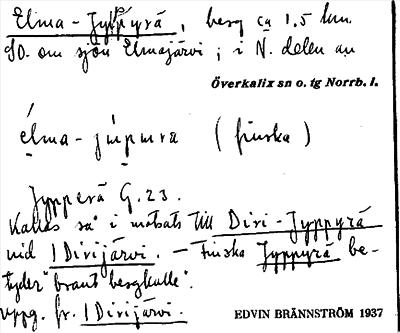 Elma-Jyppyrä, berg ca 1,5 km
SO. om sjön Elmajärvi; i N. delen av
Överkalix sn o. tg Norrb. l.
élma-júpurä (finska)
Jypperä G. 23.
Kallas så i motsats till Diri-Jyppyrä
vid 1 Dirijärvi. — Finska Jyppyrä be-
tyder "brant bergkulle".
Uppg. fr. 1 Dirijärvi.
EDVIN BRÄNNSTRÖM 1937